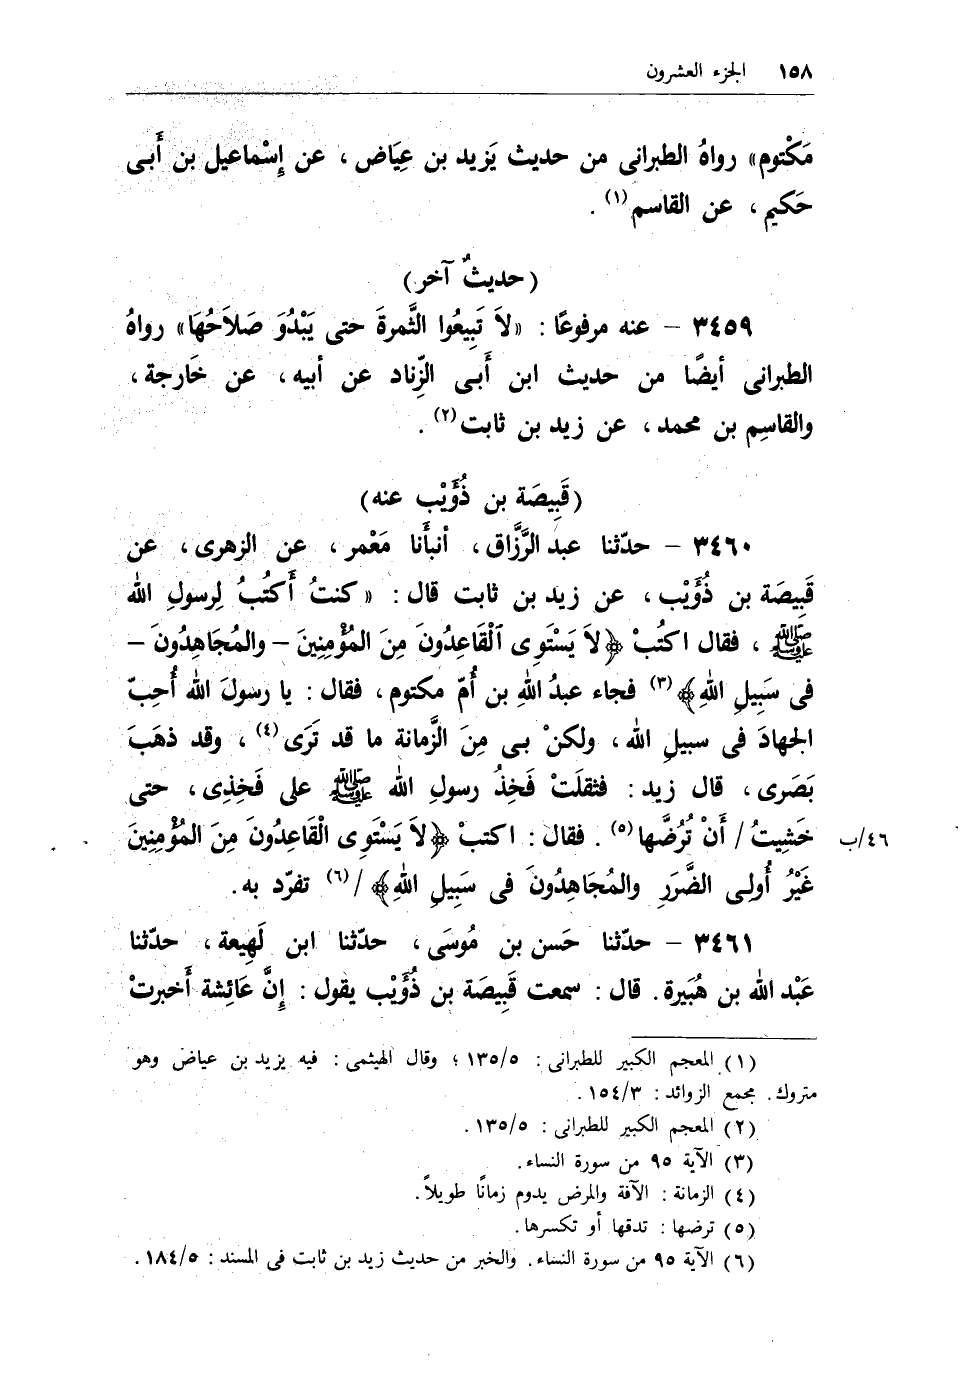 ١٥٨ الجزء العشرون
مَكْتوم» رواهُ الطبرانى من حديث يَزيد بن عِيَاض ، عن إِسْماعيل بن أَبى
حَكيم ، عن القاسم(١) .
(حديثٌ آخر)
٣٤٥٩ – عنه مرفوعًا : «لاَ تَبِيعُوا الثَّمرةَ حتى يَبْدُوَ صَلاَحُهَا» رواهُ
الطبرانى أيضًا من حديث ابن أَبى الزِّناد عن أبيه ، عن خَارجة ،
والقاسِم بن محمد ، عن زيد بن ثابت(٢) .
(قَبِيصَة بن ذُؤَيْب عنه)
٣٤٦٠ – حدّثنا عبد الرَّزَّاق ، أنبأَنا مَعْمر ، عن الزهرى ، عن
قَبِيصَة بن ذُؤَيْب ، عن زيد بن ثابت قال : « كنتُ أَكتُبُ لِرسولِ الله
ﷺ ، فقال اكتُبْ ﴿لاَ يَسْتَوِى ٱلْقَاعِدُونَ مِنَ المُؤْمِنِينَ – والمُجَاهِدُونَ –
فى سَبِيلِ اللهِ﴾(٣) فجاء عبدُ الله بن أُمّ مكتوم ، فقال : يا رسولَ الله أُحِبّ
الجهادَ فى سبيلِ الله ، ولكنْ بى مِنَ الزَّمانة ما قد تَرَى(٤) ، وقد ذهَبَ
بَصَرى ، قال زيد : فثقلَتْ فَخِذُ رسولِ الله ﷺ على فَخِذِى ، حتى
خَشِيتُ / أَنْ تُرُضَّها(٥) . فقال : اكتبْ ﴿لاَ يَسْتَوِى القَاعِدُونَ مِنَ المُؤمِنِينَ ٤٦/ب
غَيْرُ أُولِى الضَّرَرِ والمُجَاهِدُونَ فى سَبِيلِ اللهِ﴾ /(٦) تفرّد به .
٣٤٦١ – حدّثنا حَسن بن مُوسَى ، حدّثنا ابن لَهِيعة ، حدّثنا
عَبْد الله بن هُبَيرة . قال : سمعت قَبِيصَة بن ذُؤَيْب يقول : إِنَّ عَائِشة أَخبرتْ
(١) المعجم الكبير للطبرانى : ١٣٥/٥ ؛ وقال الهيثمى : فيه يزيد بن عياض وهو
متروك . مجمع الزوائد : ١٥٤/٣ .
(٢) المعجم الكبير للطبرانى : ١٣٥/٥ .
(٣) الآية ٩٥ من سورة النساء .
(٤) الزمانة : الآفة والمرض يدوم زمانًا طويلاً .
(٥) ترضها : تدقها أو تكسرها .
(٦) الآية ٩٥ من سورة النساء . والخبر من حديث زيد بن ثابت فى المسند : ١٨٤/٥ .